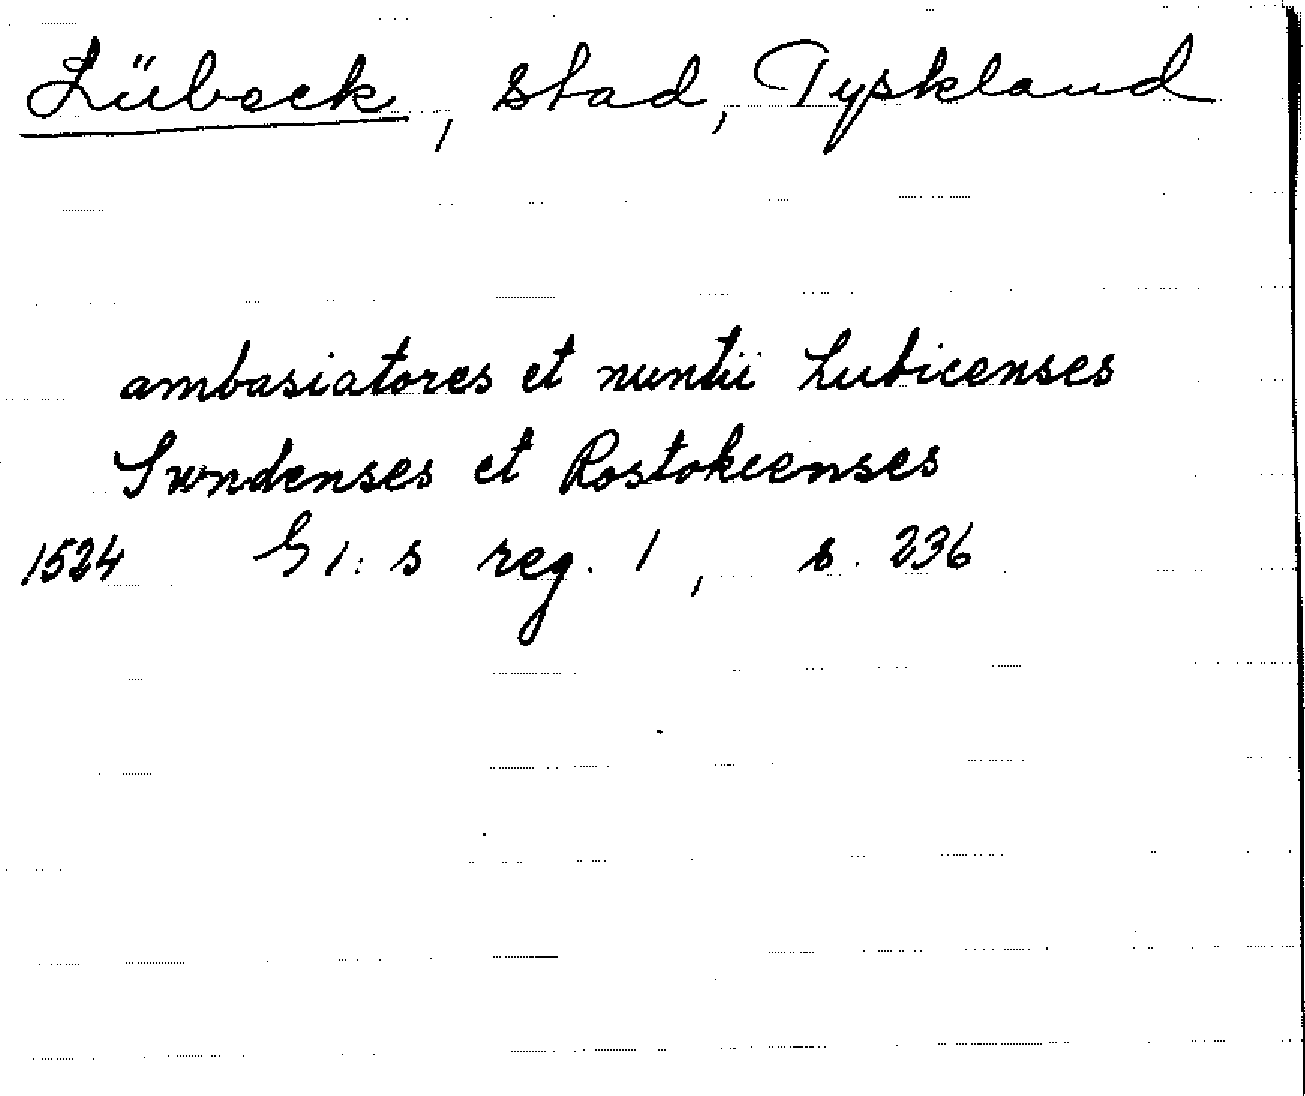 Lübeck, stad, Tyskland
ambasiatores et nuntii Lubicenses
Sundenses et Rostokcenses
1524 G1:s reg. 1, s. 236